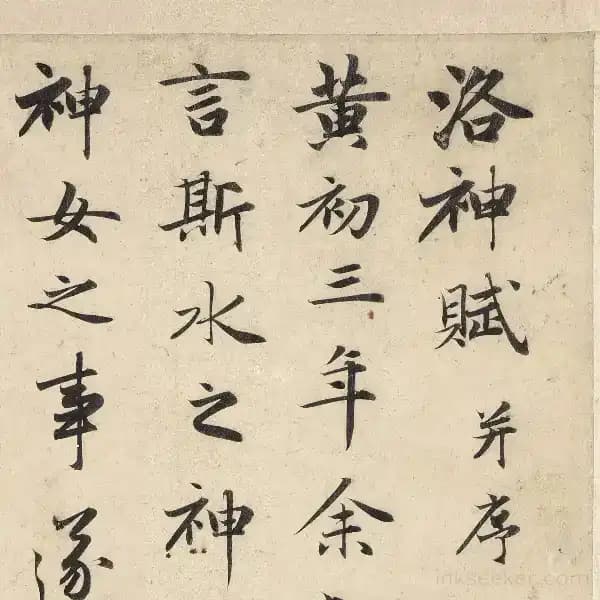 洛神賦并序
黄初三年余
言斯水之神
神女之事遂
inkseeker.com